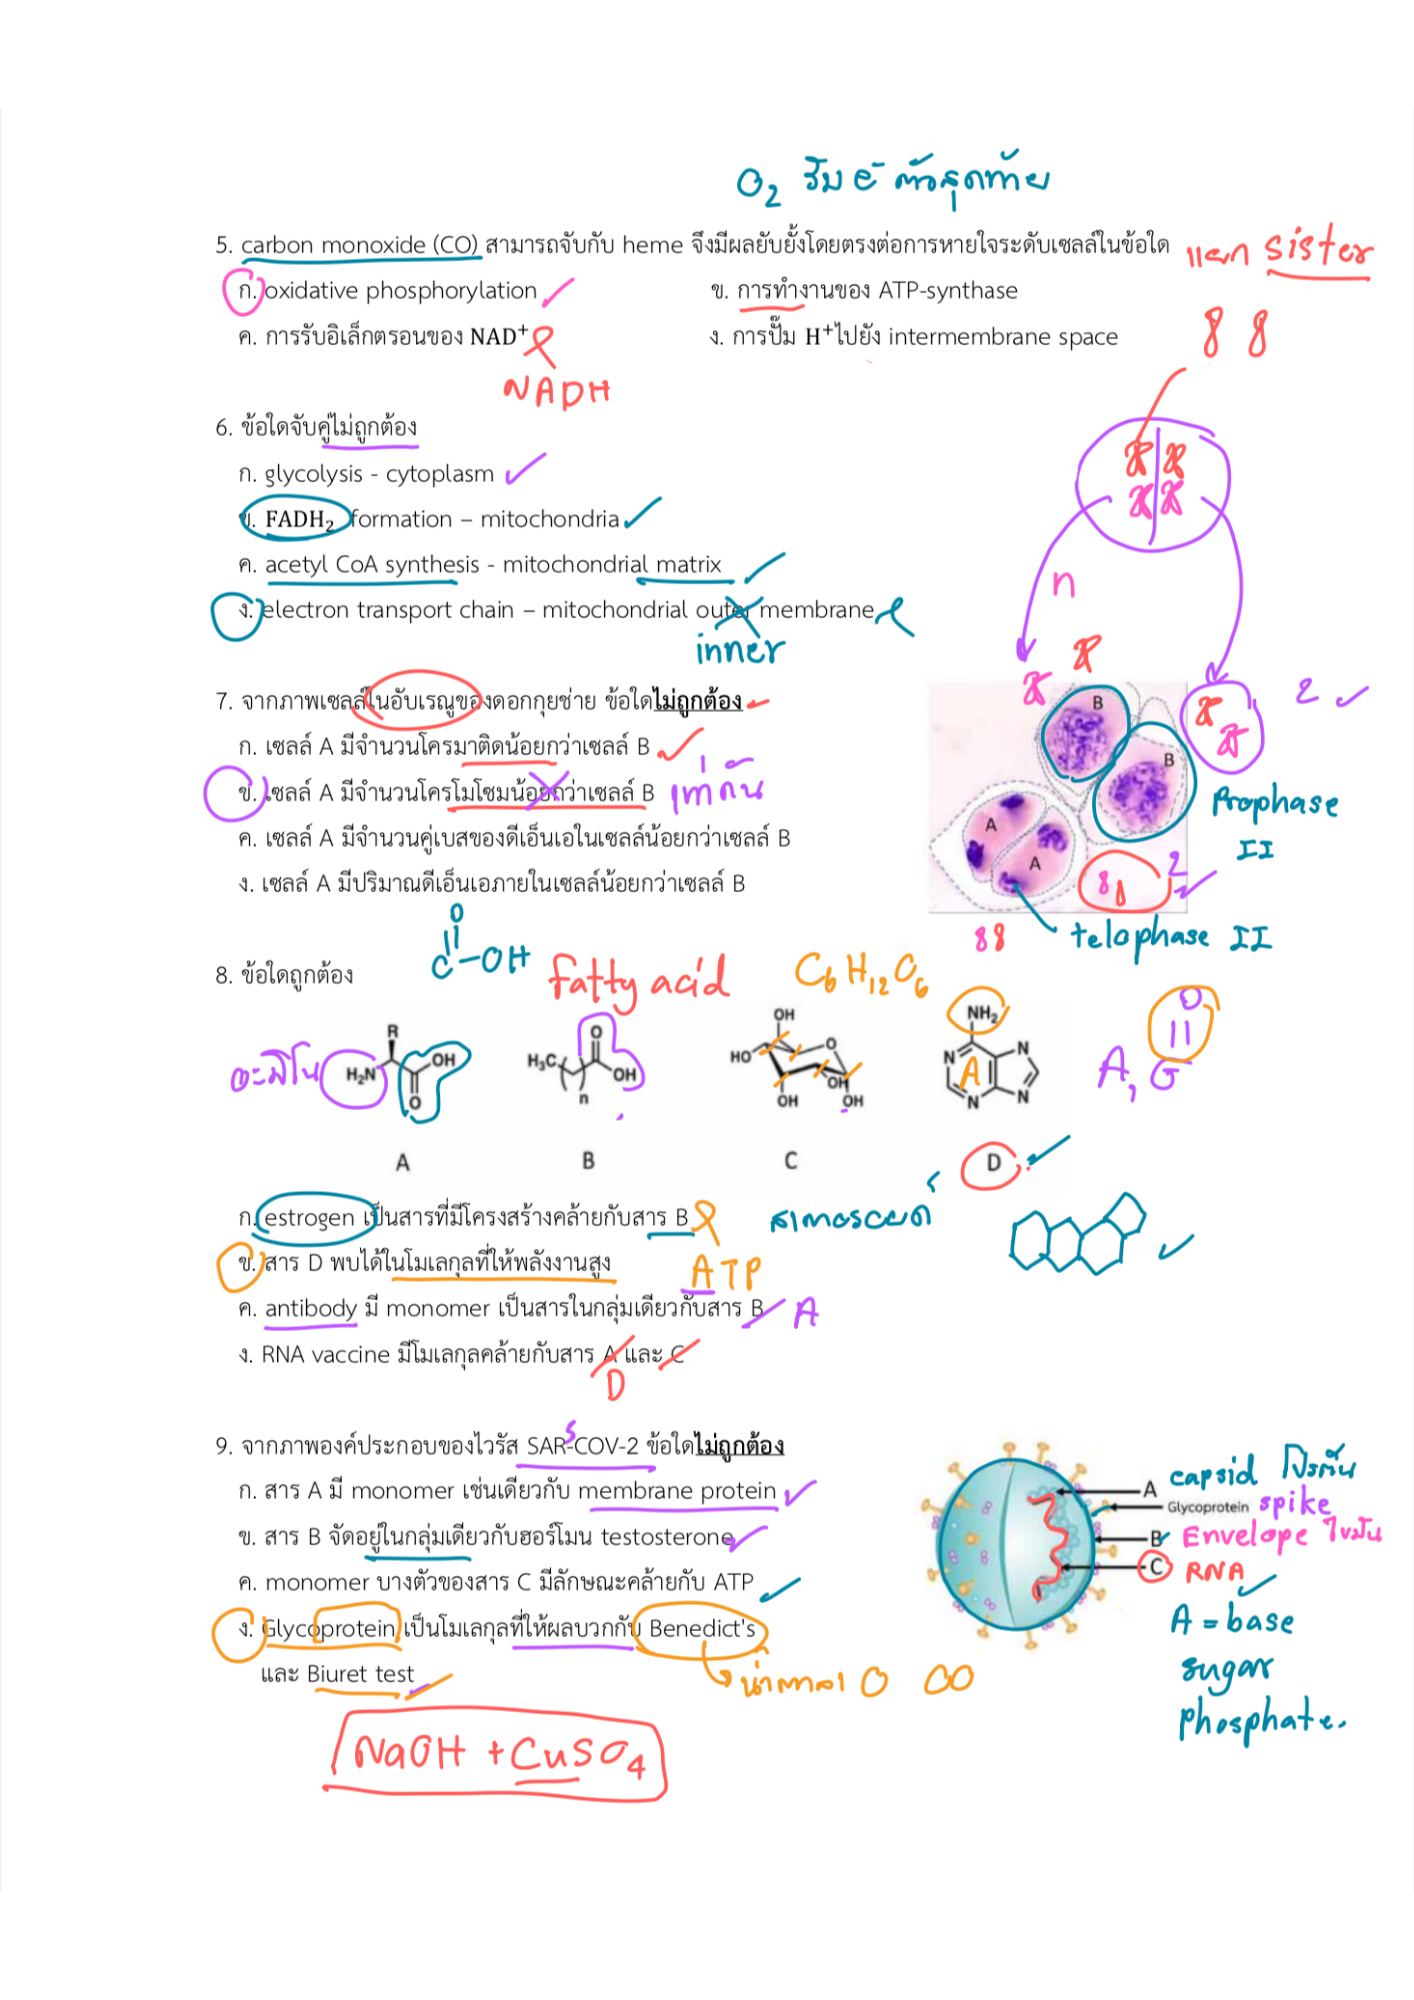 O₂ รับ e⁻ ตัวสุดท้าย
5. carbon monoxide (CO) สามารถจับกับ heme จึงมีผลยับยั้งโดยตรงต่อการหายใจระดับเซลล์ในข้อใด
แยก sister
ก. oxidative phosphorylation
ข. การทำงานของ ATP-synthase
ค. การรับอิเล็กตรอนของ NAD⁺
ง. การปั๊ม H⁺ไปยัง intermembrane space
NADH
6. ข้อใดจับคู่ไม่ถูกต้อง
ก. glycolysis - cytoplasm
ข. FADH₂ formation – mitochondria
ค. acetyl CoA synthesis - mitochondrial matrix
n
ง. electron transport chain – mitochondrial outer membrane
inner
7. จากภาพเซลล์ในอับเรณูของดอกกุยช่าย ข้อใดไม่ถูกต้อง
B
2
ก. เซลล์ A มีจำนวนโครมาติดน้อยกว่าเซลล์ B
B
ข. เซลล์ A มีจำนวนโครโมโซมน้อยกว่าเซลล์ B
เท่ากัน
Prophase
II
A
ค. เซลล์ A มีจำนวนคู่เบสของดีเอ็นเอในเซลล์น้อยกว่าเซลล์ B
A
2
ง. เซลล์ A มีปริมาณดีเอ็นเอภายในเซลล์น้อยกว่าเซลล์ B
telophase II
8. ข้อใดถูกต้อง
O
C-OH
fatty acid
C₆H₁₂O₆
อะมิโน
R
H₂N
OH
O
H₃C
O
OH
n
OH
HO
O
OH
OH
OH
NH₂
N
N
N
N
A
A, G
O
A
B
C
D
ก. estrogen เป็นสารที่มีโครงสร้างคล้ายกับสาร B
สเตอรอยด์
ข. สาร D พบได้ในโมเลกุลที่ให้พลังงานสูง
ATP
ค. antibody มี monomer เป็นสารในกลุ่มเดียวกับสาร B
A
ง. RNA vaccine มีโมเลกุลคล้ายกับสาร A และ C
D
9. จากภาพองค์ประกอบของไวรัส SAR-COV-2 ข้อใดไม่ถูกต้อง
S
ก. สาร A มี monomer เช่นเดียวกับ membrane protein
A capsid โปรตีน
Glycoprotein spike
ข. สาร B จัดอยู่ในกลุ่มเดียวกับฮอร์โมน testosterone
B Envelope ไขมัน
ค. monomer บางตัวของสาร C มีลักษณะคล้ายกับ ATP
C RNA
ง. Glycoprotein เป็นโมเลกุลที่ให้ผลบวกกับ Benedict's
A = base
และ Biuret test
น้ำตาล
sugar
phosphate.
NaOH + CuSO₄